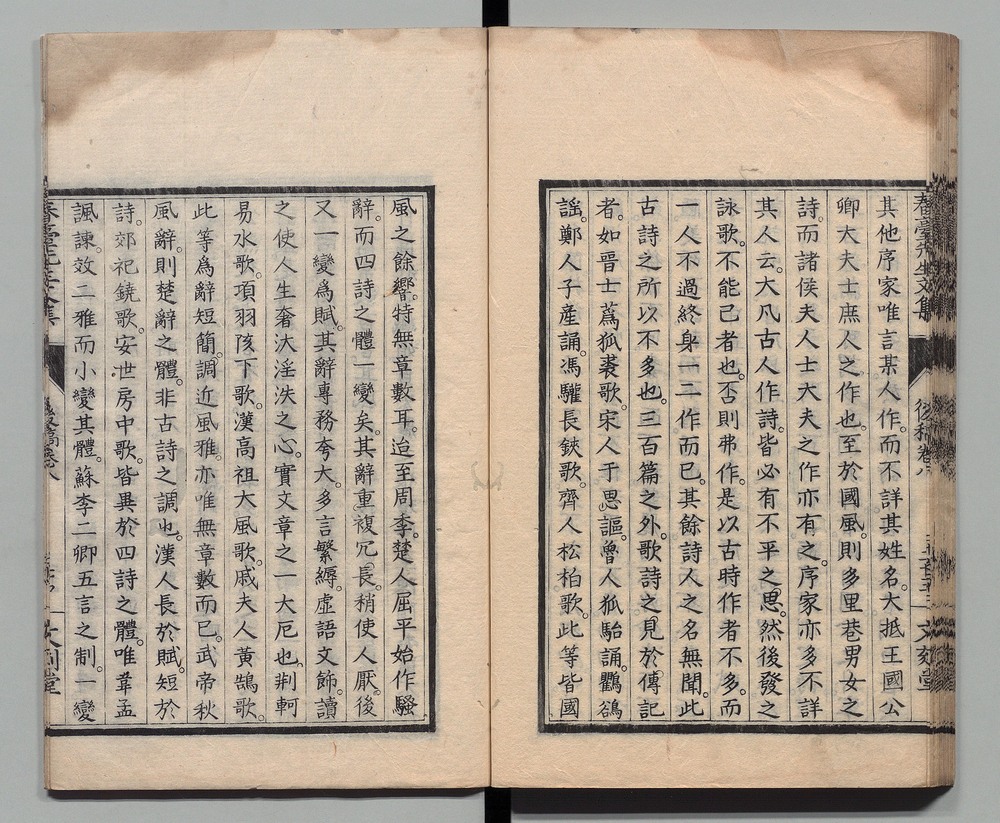 其他序家唯言某人作。而不詳其姓名。大抵王國公
卿大夫士庶人之作也。至於國風。則多里巷男女之
詩。而諸侯夫人士大夫之作亦有之。序家亦多不詳
其人云。大凡古人作詩。皆必有不平之思。然後發之
詠歌。不能已者也。否則弗作。是以古時作者不多。而
一人不過終身一二作而已。其餘詩人之名無聞。此
古詩之所以不多也。三百篇之外。歌詩之見於傳記
者。如晉士蔿狐裘歌。宋人于思謳。魯人狐駘誦。鸜鵒
謠。鄭人子産誦。馮驩長鋏歌。齊人松柏歌。此等皆國
風之餘響。特無章數耳。迨至周季。楚人屈平始作騷
辭。而四詩之體一變矣。其辭重複冗長。稍使人厭。後
又一變爲賦。其辭專務夸大。多言繁縟。虛語文飾。讀
之使人生奢汰淫泆之心。實文章之一大厄也。荆軻
易水歌。項羽垓下歌。漢高祖大風歌。戚夫人黃鵠歌。
此等爲辭短簡。調近風雅。亦唯無章數而已。武帝秋
風辭。則楚辭之體。非古詩之調也。漢人長於賦。短於
詩。郊祀鐃歌。安世房中歌。皆異於四詩之體。唯韋孟
諷諫。效二雅而小變其體。蘇李二卿五言之制。一變
春臺先生文集
後稿卷八